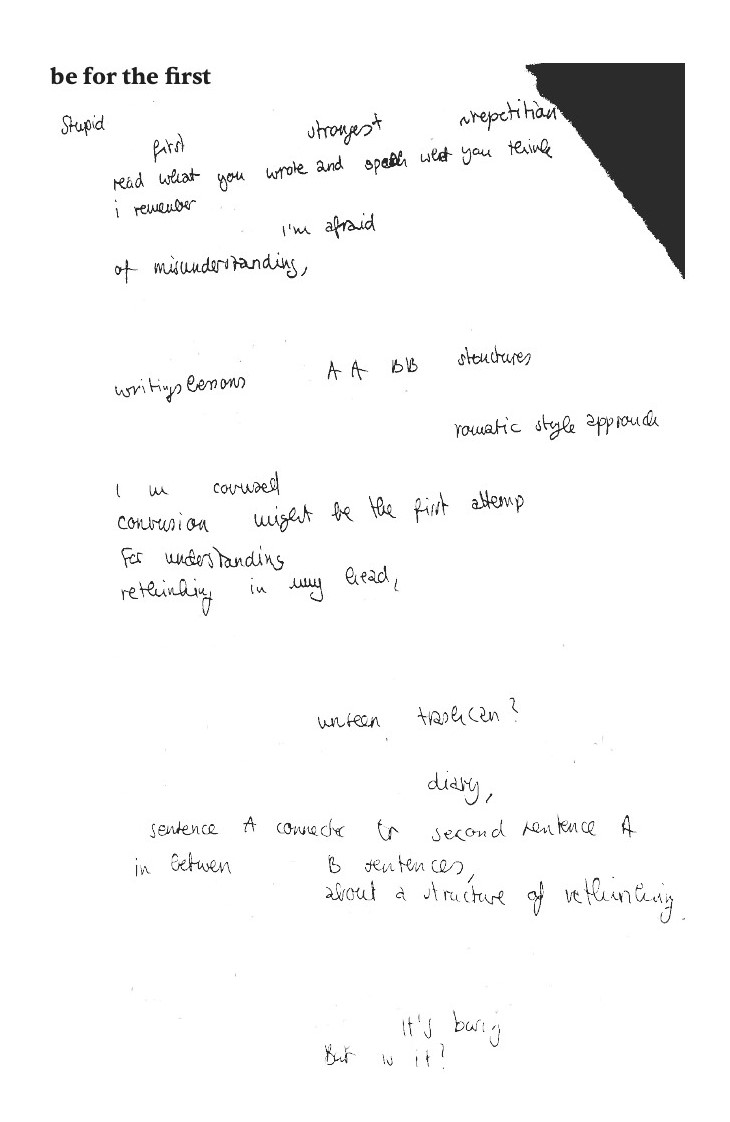 be for the first
Stupid strongest repetition
first
read what you wrote and speak what you think
i remember
I'm afraid
of misunderstanding,
writing lessons A A BB structures
romatic style approach
I m
confusion might be the first attemp
For understanding
rethinking in my head,
unseen trash can?
diary,
sentence A connects to second sentence A
in betwen B sentences,
about a structure of rethinking.
it's
But is it?